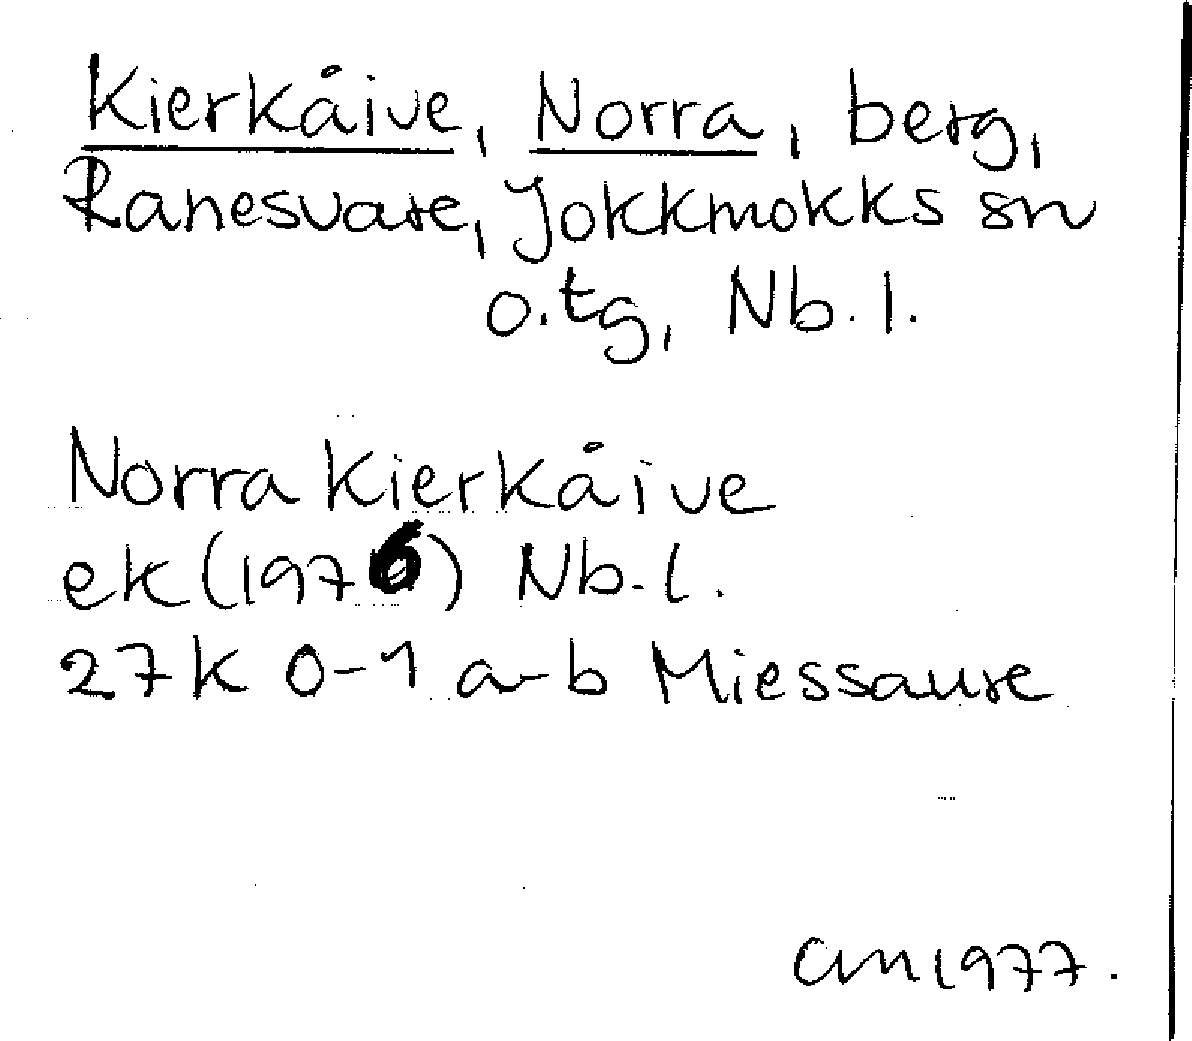 Kierkåive, Norra, berg,
Ranesvare, Jokkmokks sn
o.tg, Nb.l.
Norra Kierkåive
ek (1976) Nb.l.
27K 0-1 a-b Miessaure
am 1977.